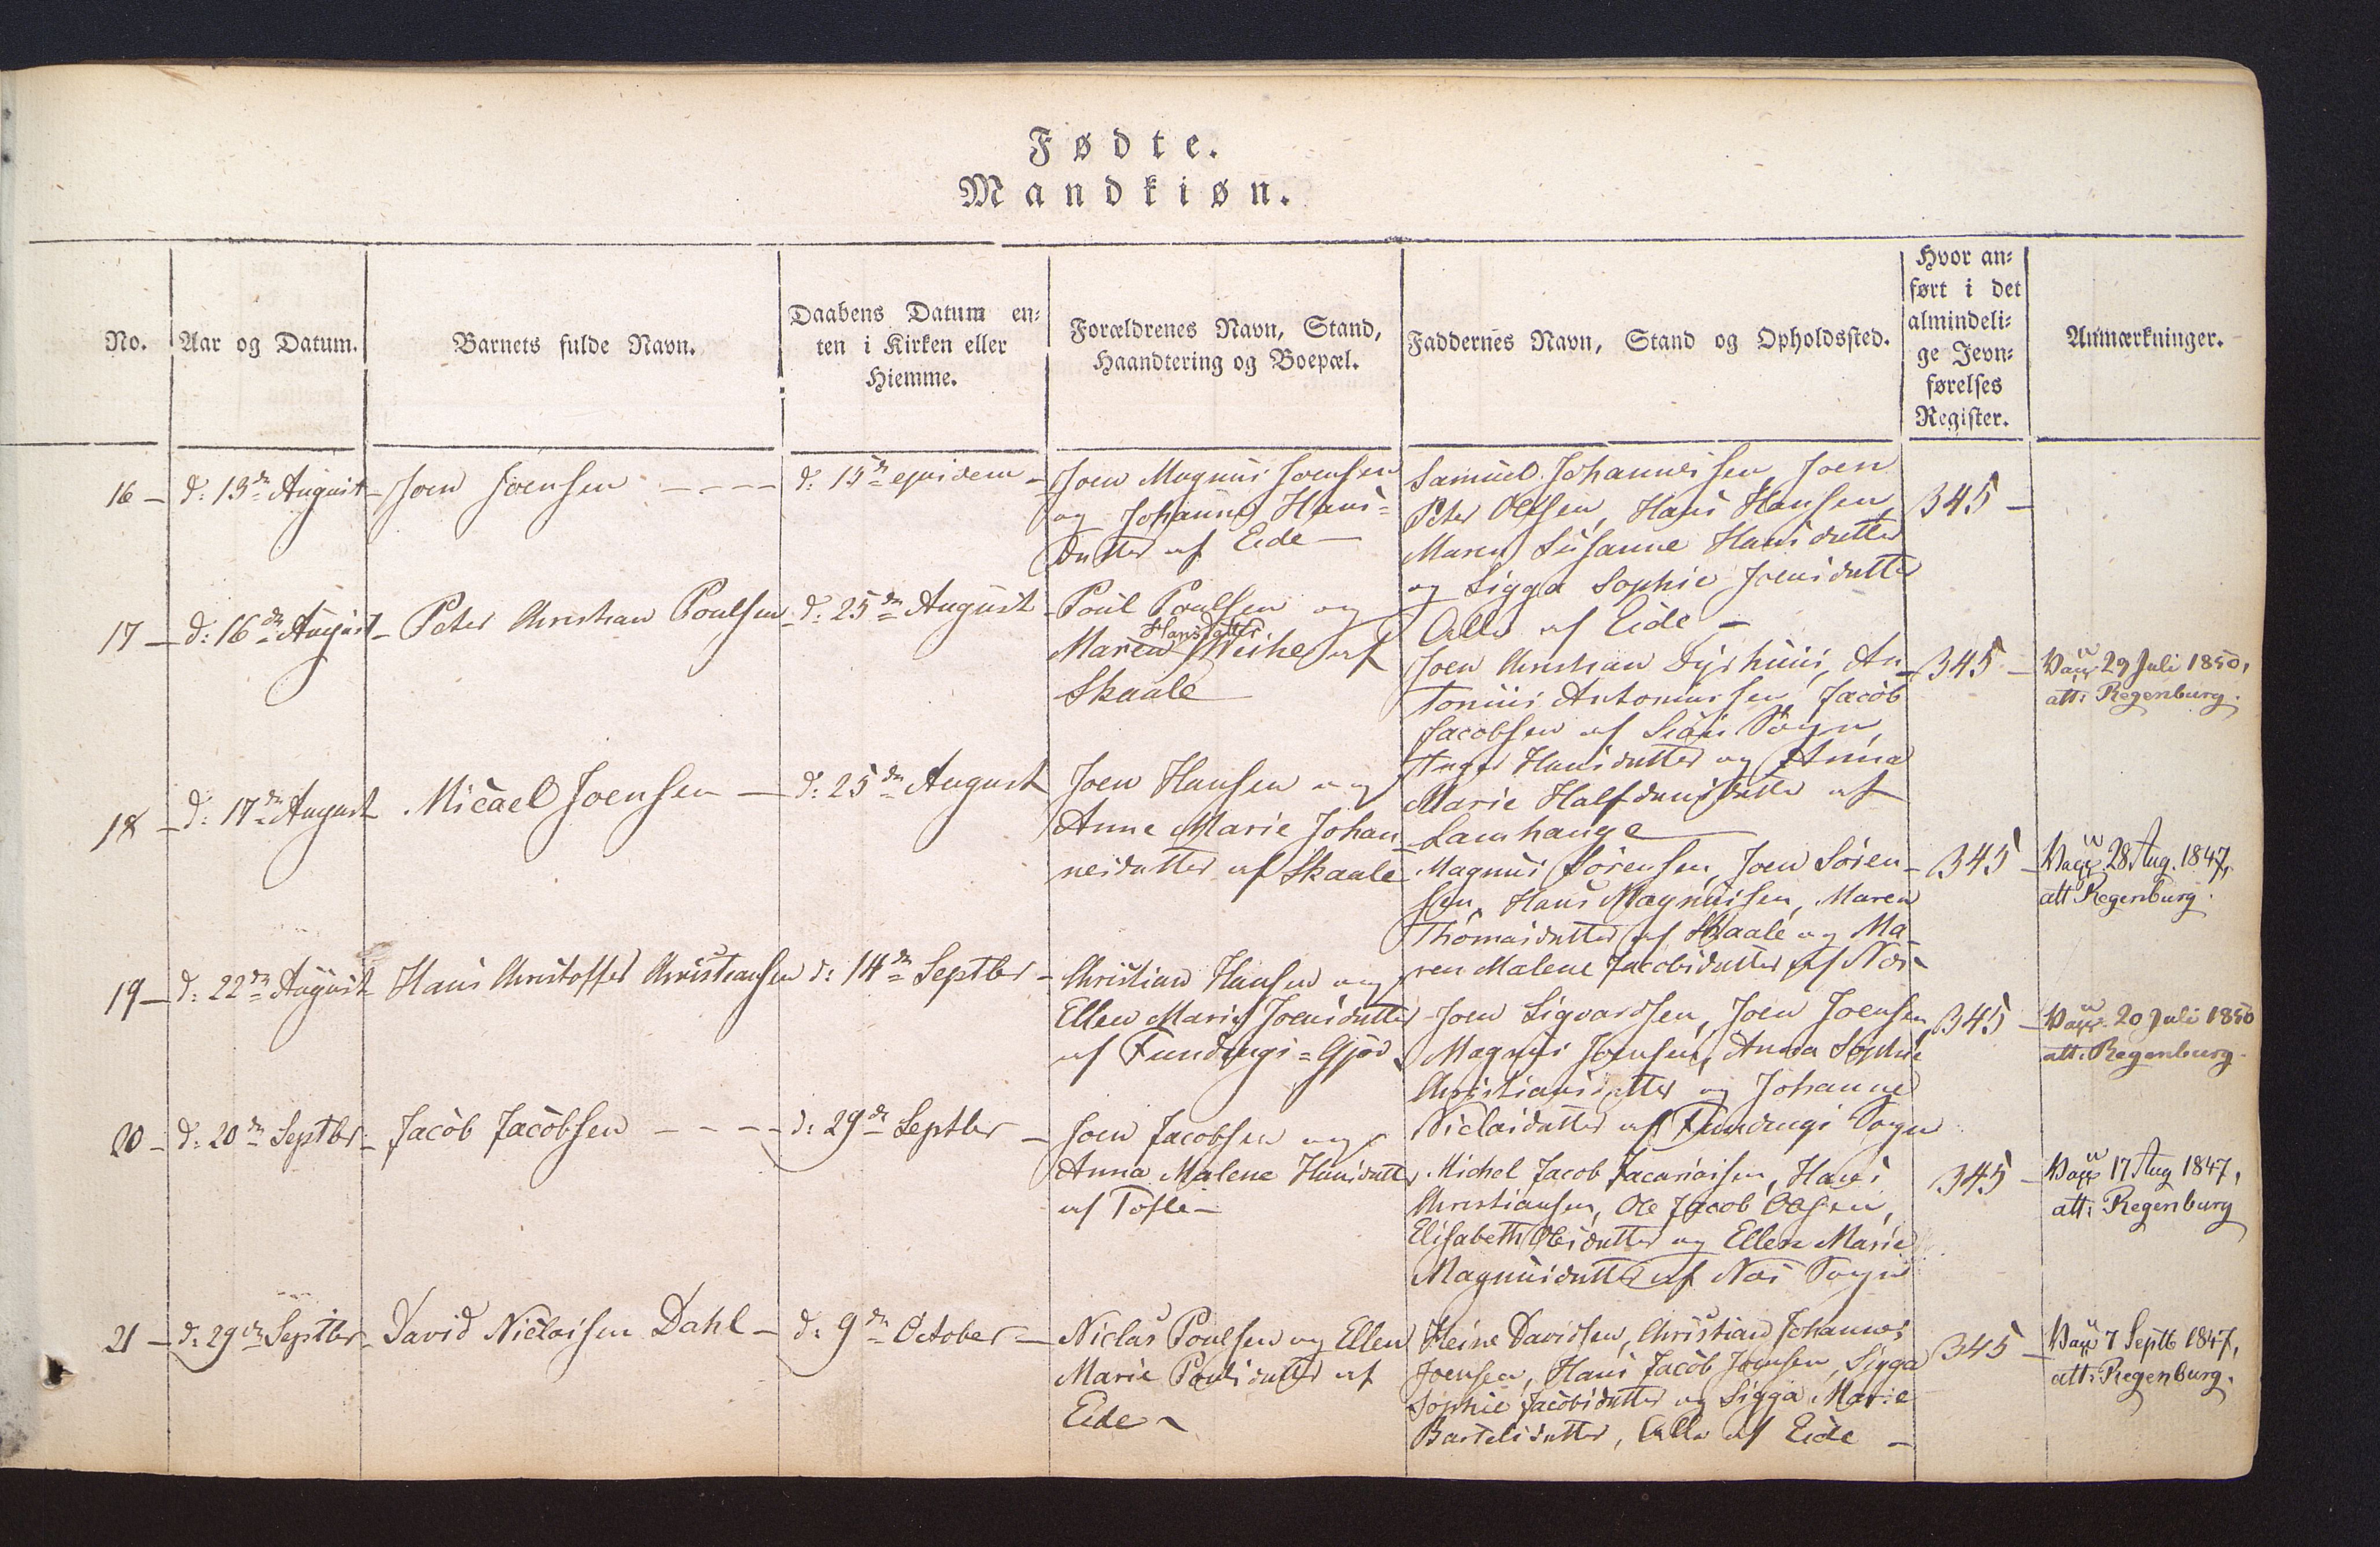 Fødte.
Mandkiøn.
No.
Aar og Datum.
Barnets fulde Navn.
Daabens Datum en-
ten i Kirken eller
Hiemme.
Forældrenes Navn, Stand,
Haandtering og Boepæl.
Faddernes Navn, Stand og Opholdssted.
Hvor an-
ført i det
almindeli-
ge Jevn-
førelses
Register.
Anmærkninger.
16 -
d: 13de August -
Joen Joensen - - - -
d: 15de ejusdem -
Joen Magnus Joensen
og Johanne Hans-
datter af Eide -
Samuel Johannessen, Joen
Peter Olesen, Hans Hansen,
Maren Susanne Hansdatter
og Sigga Sophie Joensdatter
Alle af Eide -
345 -
17 -
d: 16de August -
Peter Christian Poulsen
d: 25de August -
Poul Poulsen og
Hansdatter
Maren Weihe af
Skaale
Joen Christian Dyrhuus, An-
tonius Antoniussen, Jacob
Jacobsen af Siøv Sogn,
Hansdatter og Anna
Marie Halfdansdatter af
Lamhauge
345 -
Vacc 29 Juli 1850,
att: Regenburg.
18 -
d: 17de August
Micael Joensen -
d: 25de August
Joen Hansen og
Anne Marie Johan-
nesdatter af Skaale
Magnus Sørensen, Joen Søren-
sen, Hans Magnussen, Maren
Thomasdatter af Skaale og Ma-
ren Malene Jacobsdatter af Næs
345 -
Vacc 28 Aug. 1847,
att Regenburg.
19 -
d: 22de August
Hans Christoffer Christiansen
d: 14de Septbr -
Christian Hansen og
Ellen Marie Joensdatter
af Fundings-Gjov
Joen Sigvardsen, Joen Joensen
Magnus Joensen, Anna Sophie
Christiansdatter og Johanne
Niclasdatter af Fundings Sogn
345 -
Vacc. 20 Juli 1850
att: Regenburg.
20 -
d: 20de Septbr -
Jacob Jacobsen - - - -
d: 29de Septbr -
Joen Jacobsen og
Anna Malene Hansdatter
af Tofte -
Michel Jacob Jacariassen, Hans
Christiansen, Ole Jacob Olesen,
Elisabeth Olesdatter og Ellen Marie
Magnusdatter af Næs Sogn
345 -
Vacc 17 Aug 1847,
att: Regenburg
21 -
d: 29de Septbr -
David Niclaisen Dahl -
d: 9de October -
Niclas Poulsen og Ellen
Marie Poulsdatter af
Eide -
Heine Davidsen, Christian Johannes
Joensen, Hans Jacob Joensen, Sigga
Sophie Jacobsdatter og Sigga Marie
Bartelsdatter, Alle af Eide -
345 -
Vacc 7 Septb 1847,
att: Regenburg.